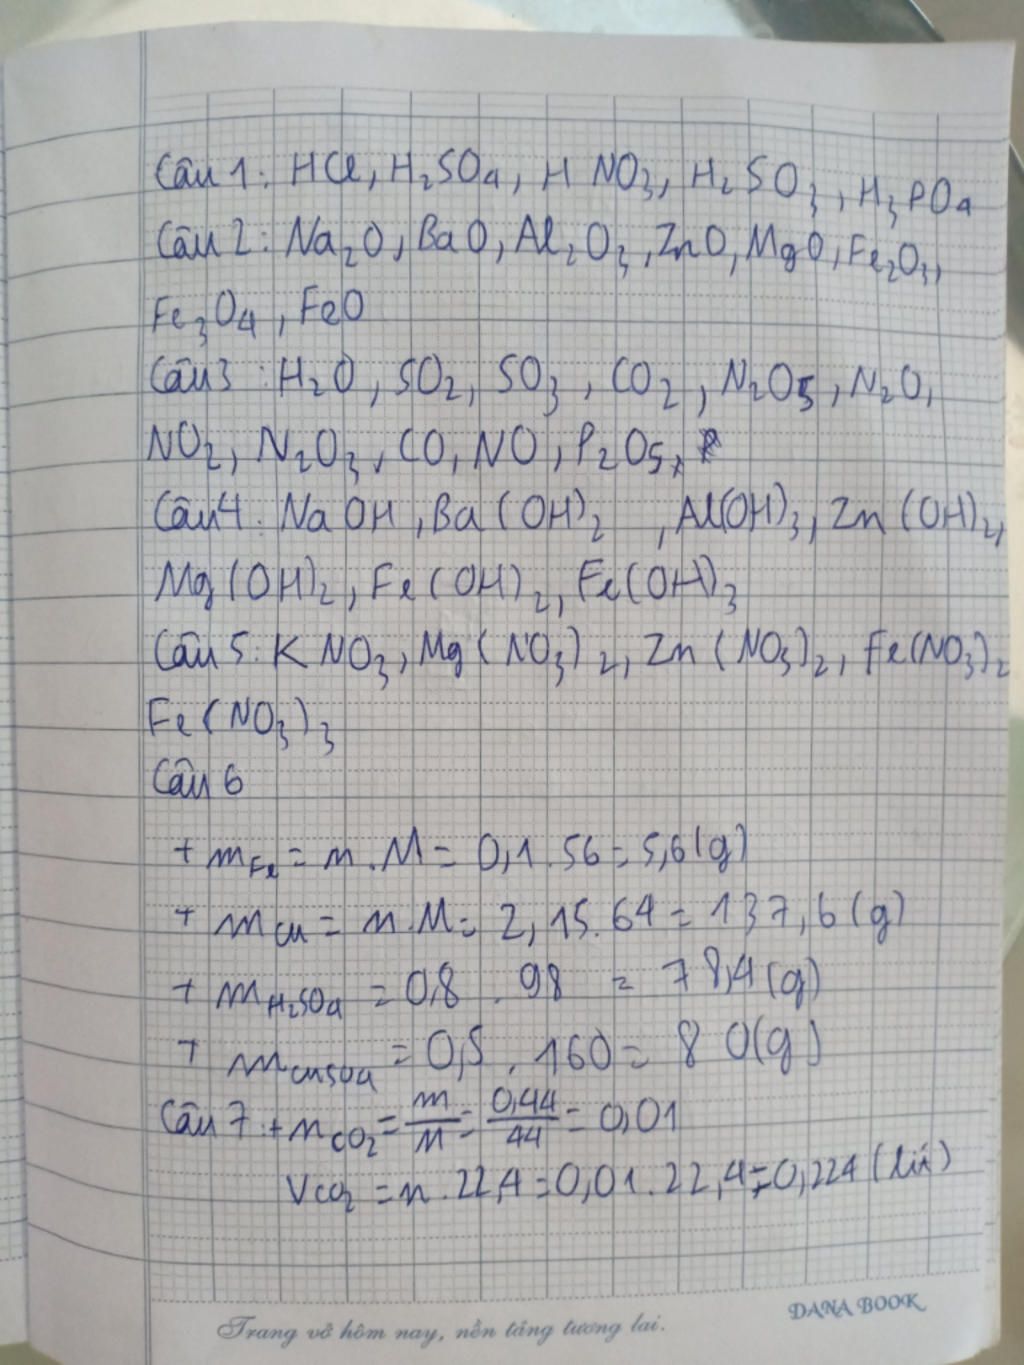 Câu 1: HCl, H₂SO₄, HNO₃, H₂SO₃, H₃PO₄
Câu 2: Na₂O, BaO, Al₂O₃, ZnO, MgO, Fe₂O₃,
Fe₃O₄, FeO
Câu 3: H₂O, SO₂, SO₃, CO₂, N₂O₅, N₂O,
NO₂, N₂O₃, CO, NO, P₂O₅,
Câu 4: NaOH, Ba(OH)₂, Al(OH)₃, Zn(OH)₂,
Mg(OH)₂, Fe(OH)₂, Fe(OH)₃
Câu 5: KNO₃, Mg(NO₃)₂, Zn(NO₃)₂, Fe(NO₃)₂
Fe(NO₃)₃
Câu 6
+ mFe = n.M = 0,1.56 = 5,6(g)
+ mCu = n.M = 2,15.64 = 137,6(g)
+ mH₂SO₄ = 0,8.98 = 78,4(g)
+ mCuSO₄ = 0,5.160 = 80(g)
Câu 7: + nCO₂ = m/M = 0,44/44 = 0,01
VCO₂ = n.22,4 = 0,01.22,4 = 0,224 (lít)
Trang vở hôm nay, nền tảng tương lai.
DANA BOOK